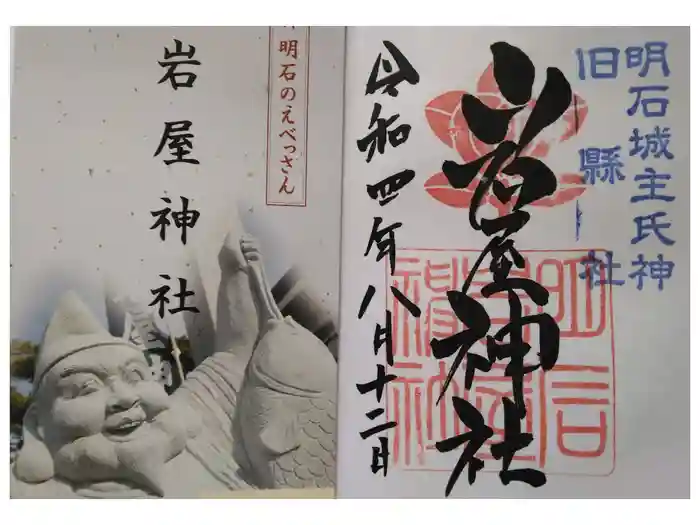 明石のえべっさん
岩屋神社
明石城主氏神
旧縣社
岩屋神社
令和四年八月十二日
明石
岩屋
神社